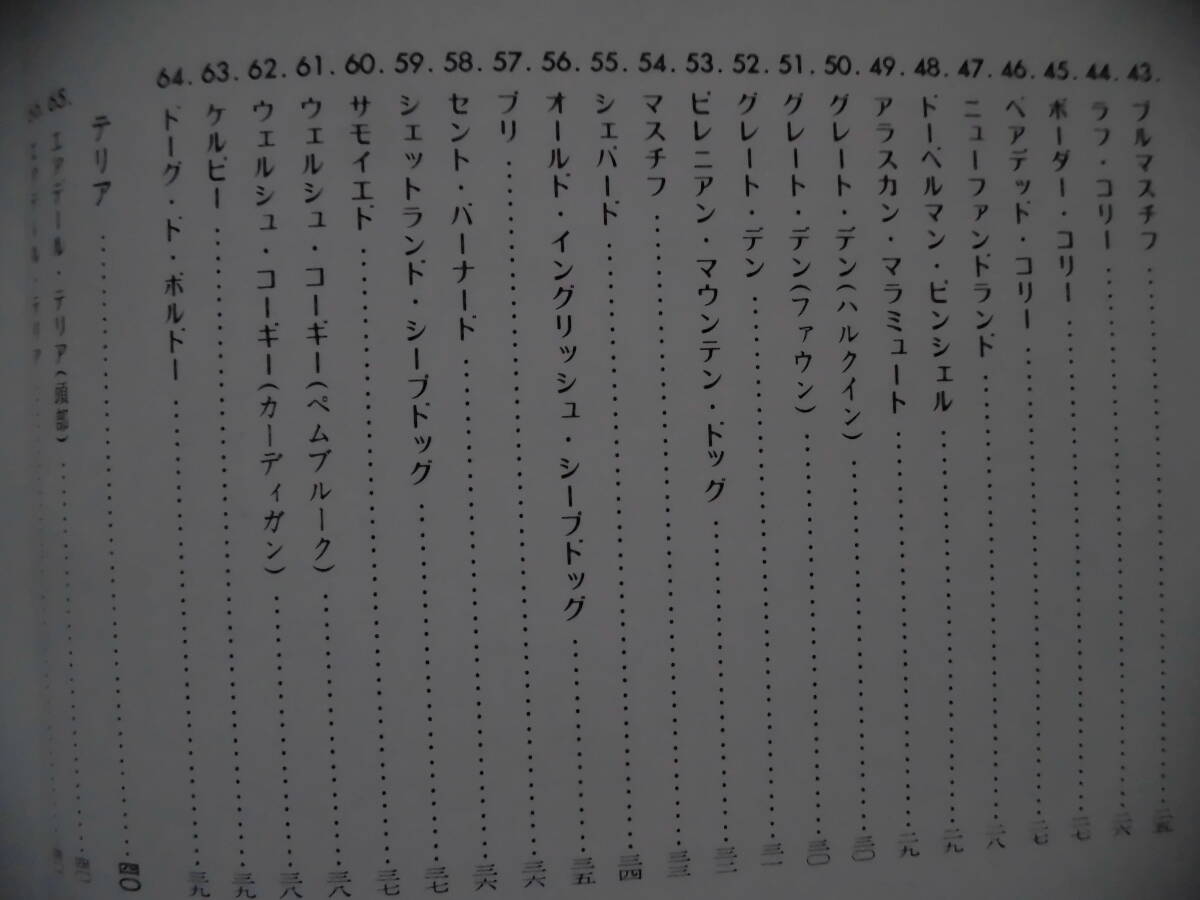 43. ブルマスチフ……二五
44. ラフ・コリー……二六
45. ボーダー・コリー……二七
46. ベアデッド・コリー……二七
47. ニューファンドランド……二八
48. ドーベルマン・ピンシェル……二九
49. アラスカン・マラミュート……二九
50. グレート・デン(ハルクイン)……三〇
51. グレート・デン(ファウン)……三〇
52. グレート・デン……三一
53. ピレニアン・マウンテン・ドッグ……三二
54. マスチフ……三三
55. シェパード……三四
56. オールド・イングリッシュ・シープドッグ……三五
57. プリ……三六
58. セント・バーナード……三六
59. シェットランド・シープドッグ……三七
60. サモイエド……三七
61. ウェルシュ・コーギー(ペムブルーク)……三八
62. ウェルシュ・コーギー(カーディガン)……三八
63. ケルピー……三九
64. ドーグ・ド・ボルドー……三九
テリア……四〇
65. エアデール・テリア(頭部)……
エアデール・テリア……